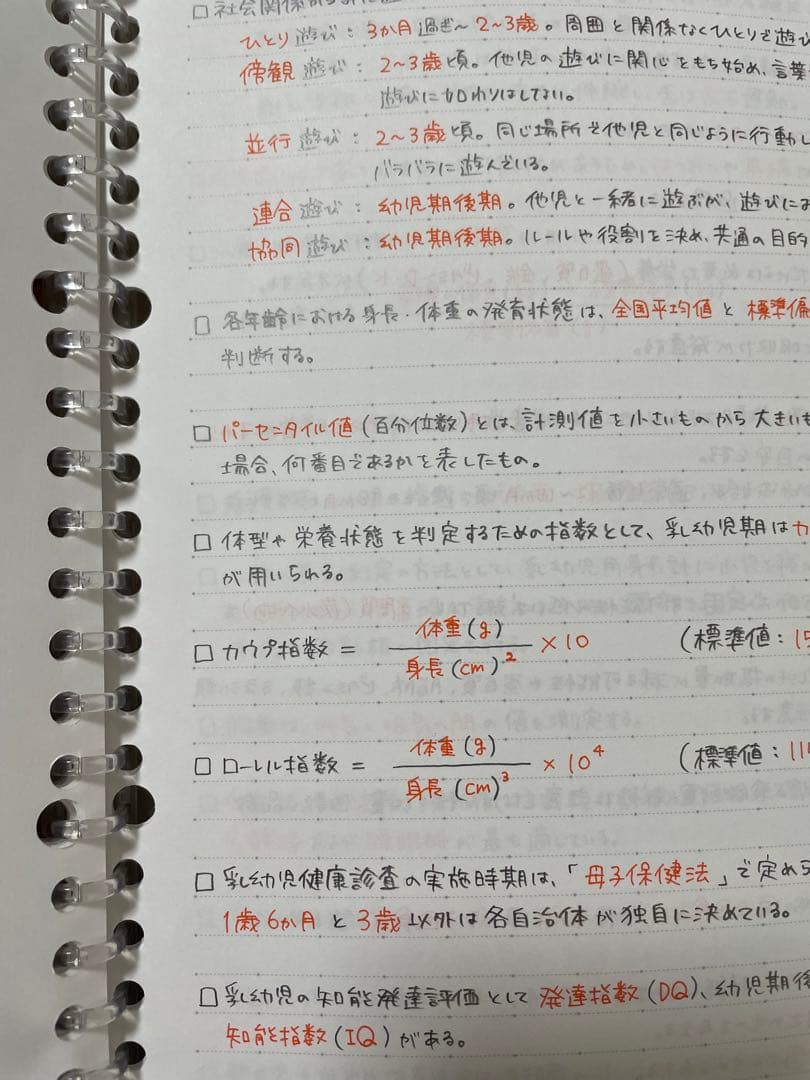 □ 社会関係から
ひとり遊び : 3か月過ぎ～2～3歳。周囲と関係なくひとりで遊び
傍観遊び : 2～3歳頃。他児の遊びに関心をもち始め、言葉
遊びに加わりはしてない。
並行遊び : 2～3歳頃。同じ場所で他児と同じように行動し
バラバラに遊んでいる。
連合遊び : 幼児期後期。他児と一緒に遊ぶが、遊びにお
協同遊び : 幼児期後期。ルールや役割を決め、共通の目的
□ 各年齢における身長・体重の発育状態は、全国平均値と標準偏
判断する。
□ パーセンタイル値(百分位数)とは、計測値を小さいものから大きいも
場合、何番目であるかを表したもの。
□ 体型や栄養状態を判定するための指数として、乳幼児期はカ
が用いられる。
□ カウプ指数 = 体重(g) / 身長(cm)² × 10 (標準値: 15
□ ローレル指数 = 体重(g) / 身長(cm)³ × 10⁴ (標準値: 11
□ 乳幼児健康診査の実施時期は、「母子保健法」で定めら
1歳6か月と3歳以外は各自治体が独自に決めている。
□ 乳幼児の知能発達評価として発達指数(DQ)、幼児期後
知能指数(IQ)がある。